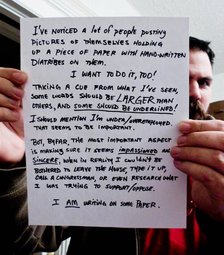 I'VE NOTICED A LOT OF PEOPLE POSTING
PICTURES OF THEMSELVES HOLDING
UP A PIECE OF PAPER WITH HAND-WRITTEN
DIATRIBES ON THEM.
I WANT TO DO IT, TOO!
TAKING A CUE FROM WHAT I'VE SEEN,
SOME WORDS SHOULD BE LARGER THAN
OTHERS, AND SOME SHOULD BE UNDERLINED!
I SHOULD MENTION I'M UNDER/
THAT SEEMS TO BE IMPORTANT.
BUT, BY FAR, THE MOST IMPORTANT ASPECT
IS MAKING SURE IT SEEMS IMPASSIONED AND
SINCERE, WHEN IN REALITY I COULDN'T BE
BOTHERED TO LEAVE THE HOUSE, TYPE IT UP,
CALL A CONGRESSMAN, OR EVEN RESEARCH WHAT
I WAS TRYING TO SUPPORT/OPPOSE.
I AM WRITING ON SOME PAPER.